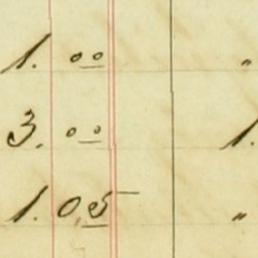 1. 00 "
3. 00 1.
1. 05 "